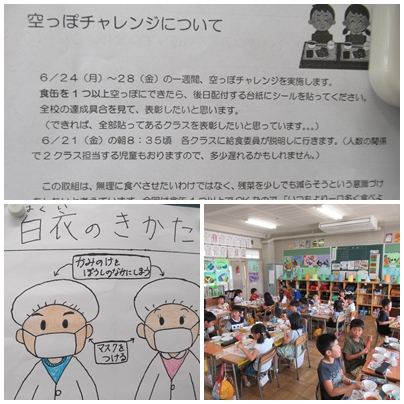 空っぽチャレンジについて
6/24(月)~28(金)の一週間、空っぽチャレンジを実施します。
食缶を1つ以上空っぽにできたら、後日配付する台紙にシールを貼ってください。
全校の達成具合を見て、表彰したいと思います。
(できれば、全部貼ってあるクラスを表彰したいと思っています。。。)
6/21(金)の朝8:35頃 各クラスに給食委員が説明しに行きます。(人数の関係
で2クラス担当する児童もおりますので、多少遅れるかもしれません。)
この取組は、無理に食べさせたいわけではなく、残菜を少しでも減らそうという意識づけ
はくい
白衣のきかた
かみのけを
ぼうしのなかにしまう
マスクを
つける